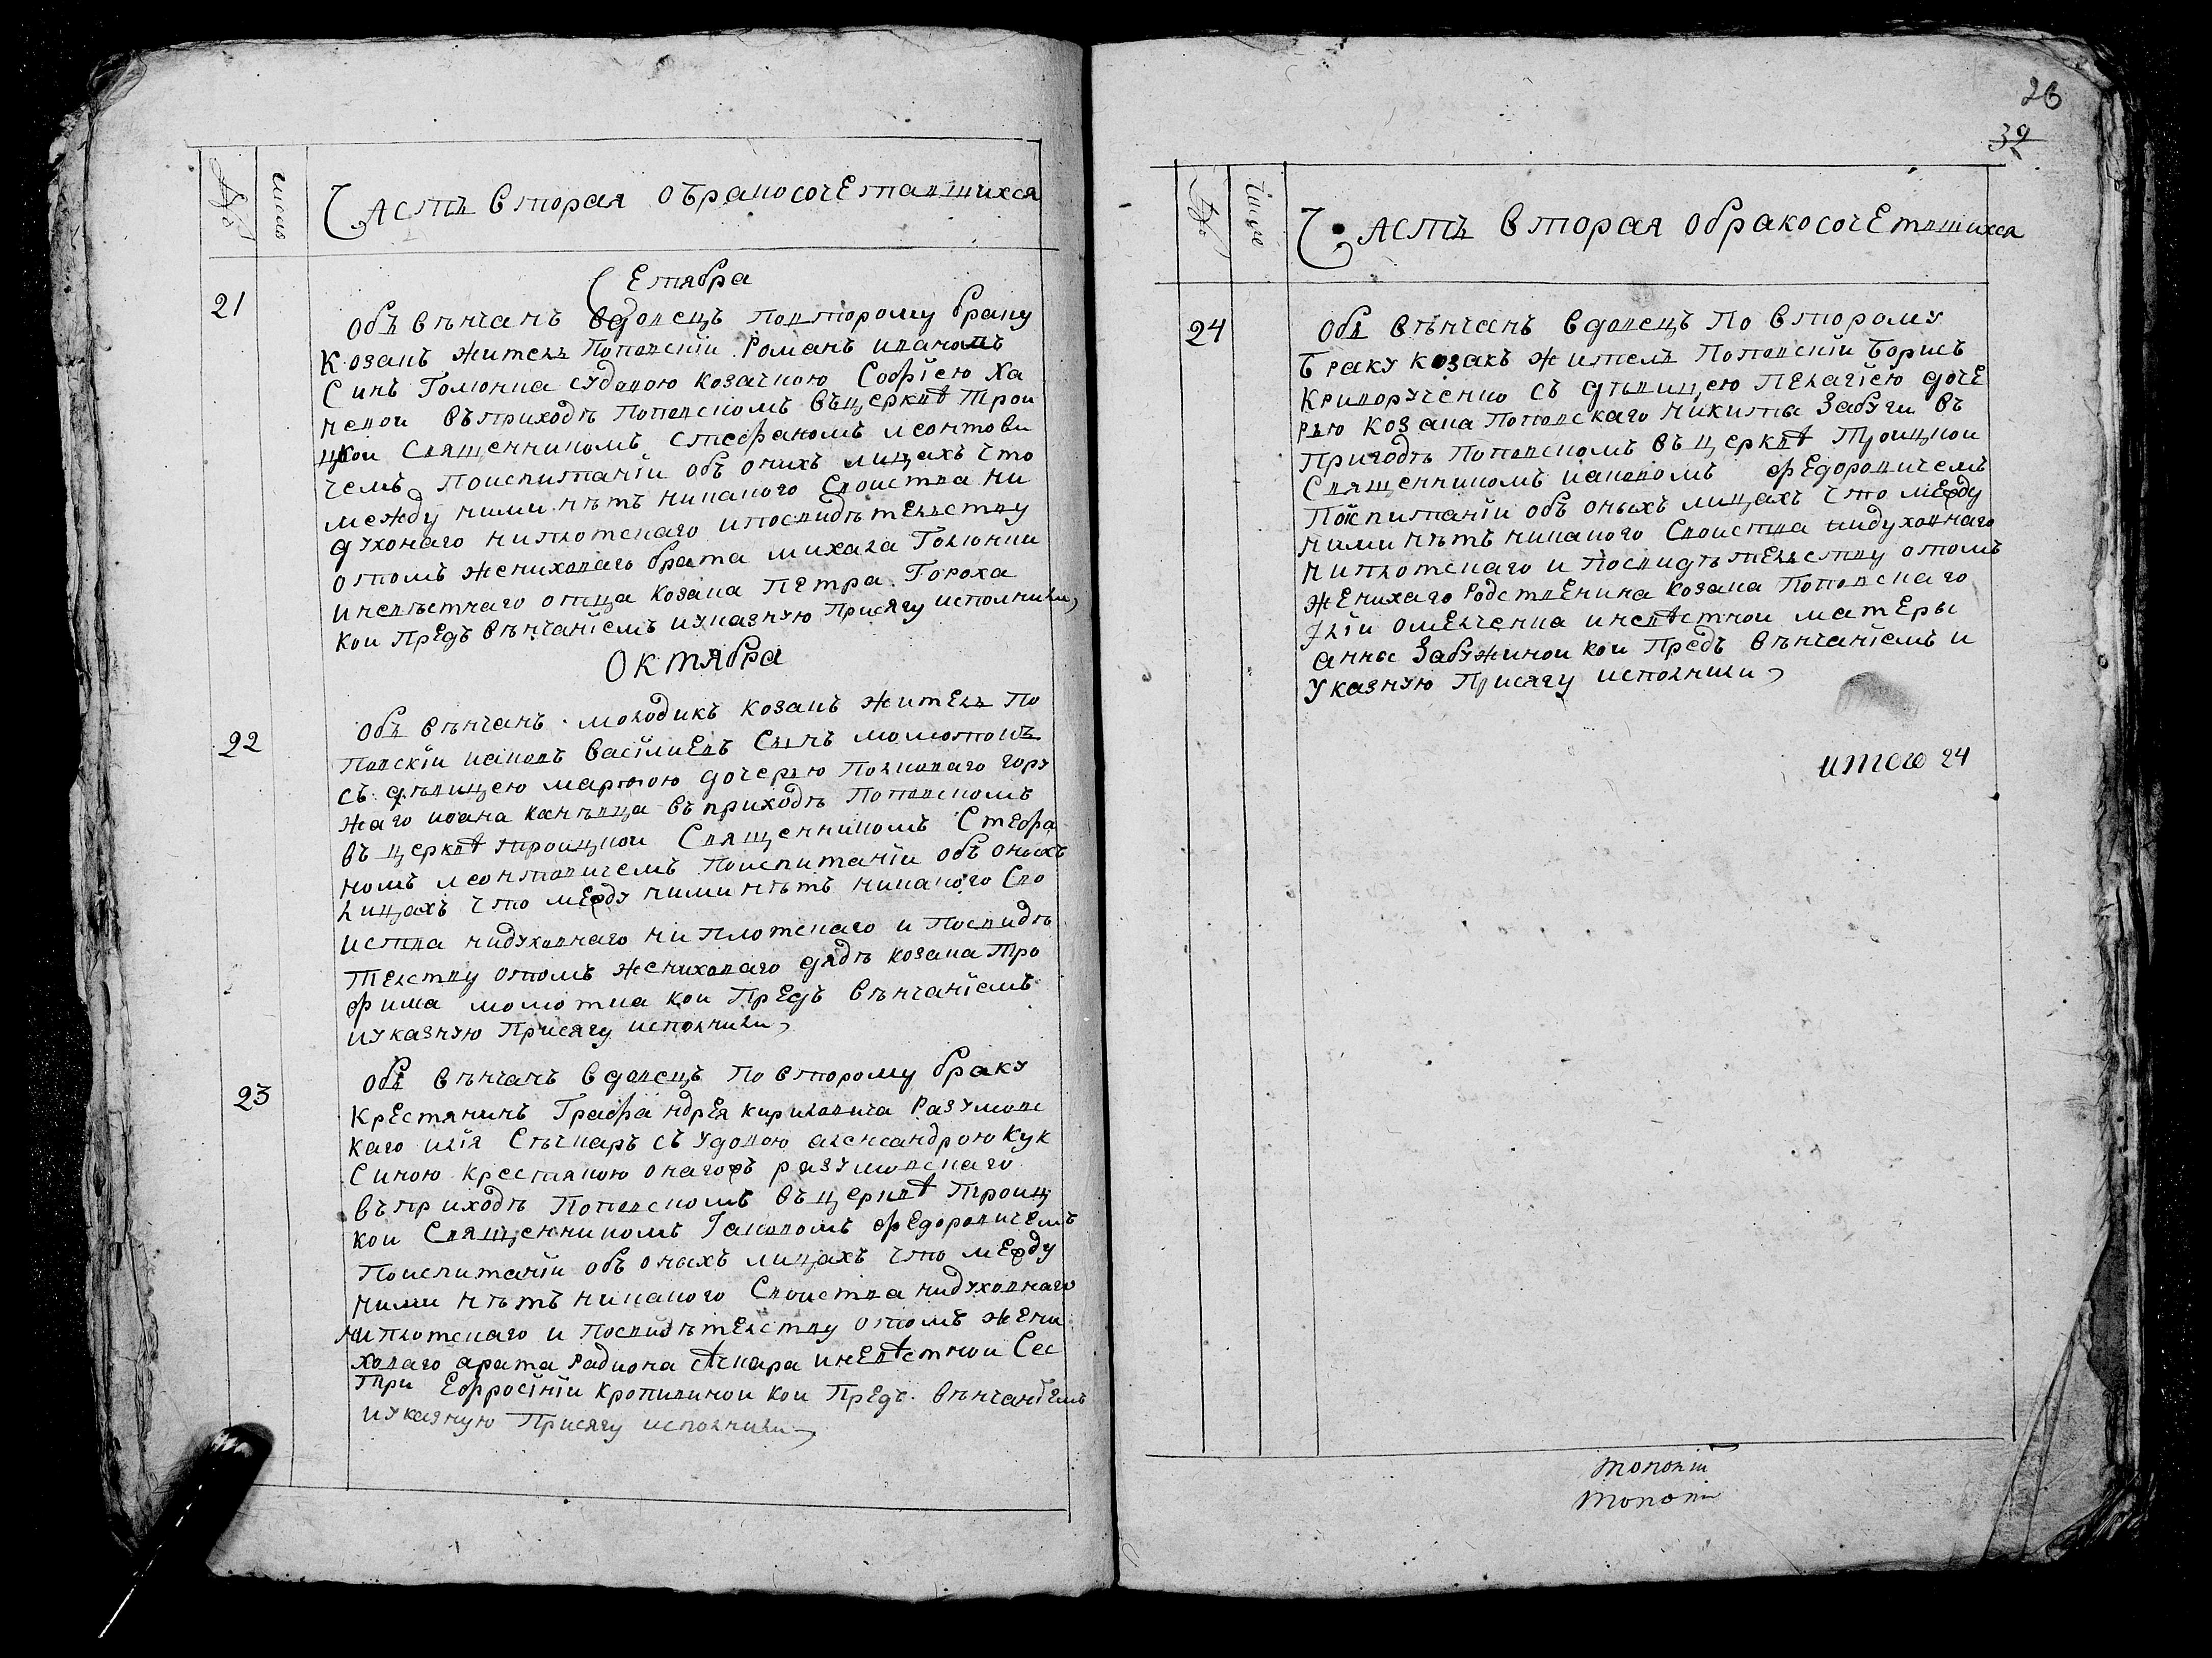 №
число
Часть вторая о браковосочетавшихся
Сетября
21
Объ вѣнчанъ вдовецъ повторому браку
козакъ житель Поповскій Романъ Ивановъ
Синъ Голюнка судовою козачкою Софіею Ха
невой въ приходѣ Поповскомъ въ церквѣ Трои
цкой Священникомъ Стефаномъ Леонтови
чемъ Поиспитаніи объ онихъ лицахъ что
между ними нѣтъ никакого Своиства ни
духонаго ниплотскаго ипосвидѣтелству
отомъ жениховаго брата михала Голюнки
иневѣстнаго отца козака Петра Гороха
кои Предъ вѣнчаніемъ иуказную Присягу исполнили,
Октября
22
Объ вѣнчанъ молодикъ козакъ житель По
повскій иаковъ Васілиевъ Сынъ момотокъ
съ дѣвицею марѳою дочерью Полковаго гору
жаго иоана канѣвца въ приходѣ Поповскомъ
въ церквѣ троицкой Священникомъ Стефа
номъ леонтовичемъ Поиспитаніи объ оныхъ
лицахъ что между ними нѣтъ никакого Сво
иства нидуховнаго ни плотскаго и Посвидѣ
телству отомъ жениховаго дядѣ козака Тро
фима момотка кои Предъ вѣнчаніемъ
иуказную Присягу исполнили,
23
Объ вѣнчанъ вдовецъ по второму браку
Крестянинъ Графа ндрея кириловича Разумовс
каго илія Сѣчкаръ съ удовою александрою Кук
Синою крестянкою онагожъ разумовскаго
въ приходѣ Поповскомъ въ церквѣ Троиц
кои Священникомъ Іаковомъ федоровичемъ
Поиспитаніи объ оныхъ лицахъ что между
ними нѣтъ никакого Своиства нидуховнаго
ниплотскаго и Посвидѣтелству отомъ жени
ховаго брата Радиона сѣчкара иневѣстной Сес
три Ефросініи Кропивиной кои Предъ вѣнчаніемъ
иуказную Присягу исполнили,
26
39
№
Число
Часть вторая обракосочетвшихся
24
Объ вѣнчанъ вдовецъ По второму
браку козакъ житель Поповскій Борисъ
Криворученко съ дѣвицею Пелагіею доче
рью козака Поповскаго никиты Забуги въ
Приходѣ Поповскомъ въ церквѣ Троицкой
Священникомъ иаковомъ федоровичемъ
Поіспитаніи объ оныхъ лицахъ что между
ними нѣтъ никакого Своиства нидуховнаго
ниплотскаго и Посвидѣтелству отомъ
женихаго Родственика козака Поповскаго
Іліи омелченка иневѣстной матеры
анны Забужиной кои Предъ вѣнчаніемъ и
указную Присягу исполнили,
итого 24